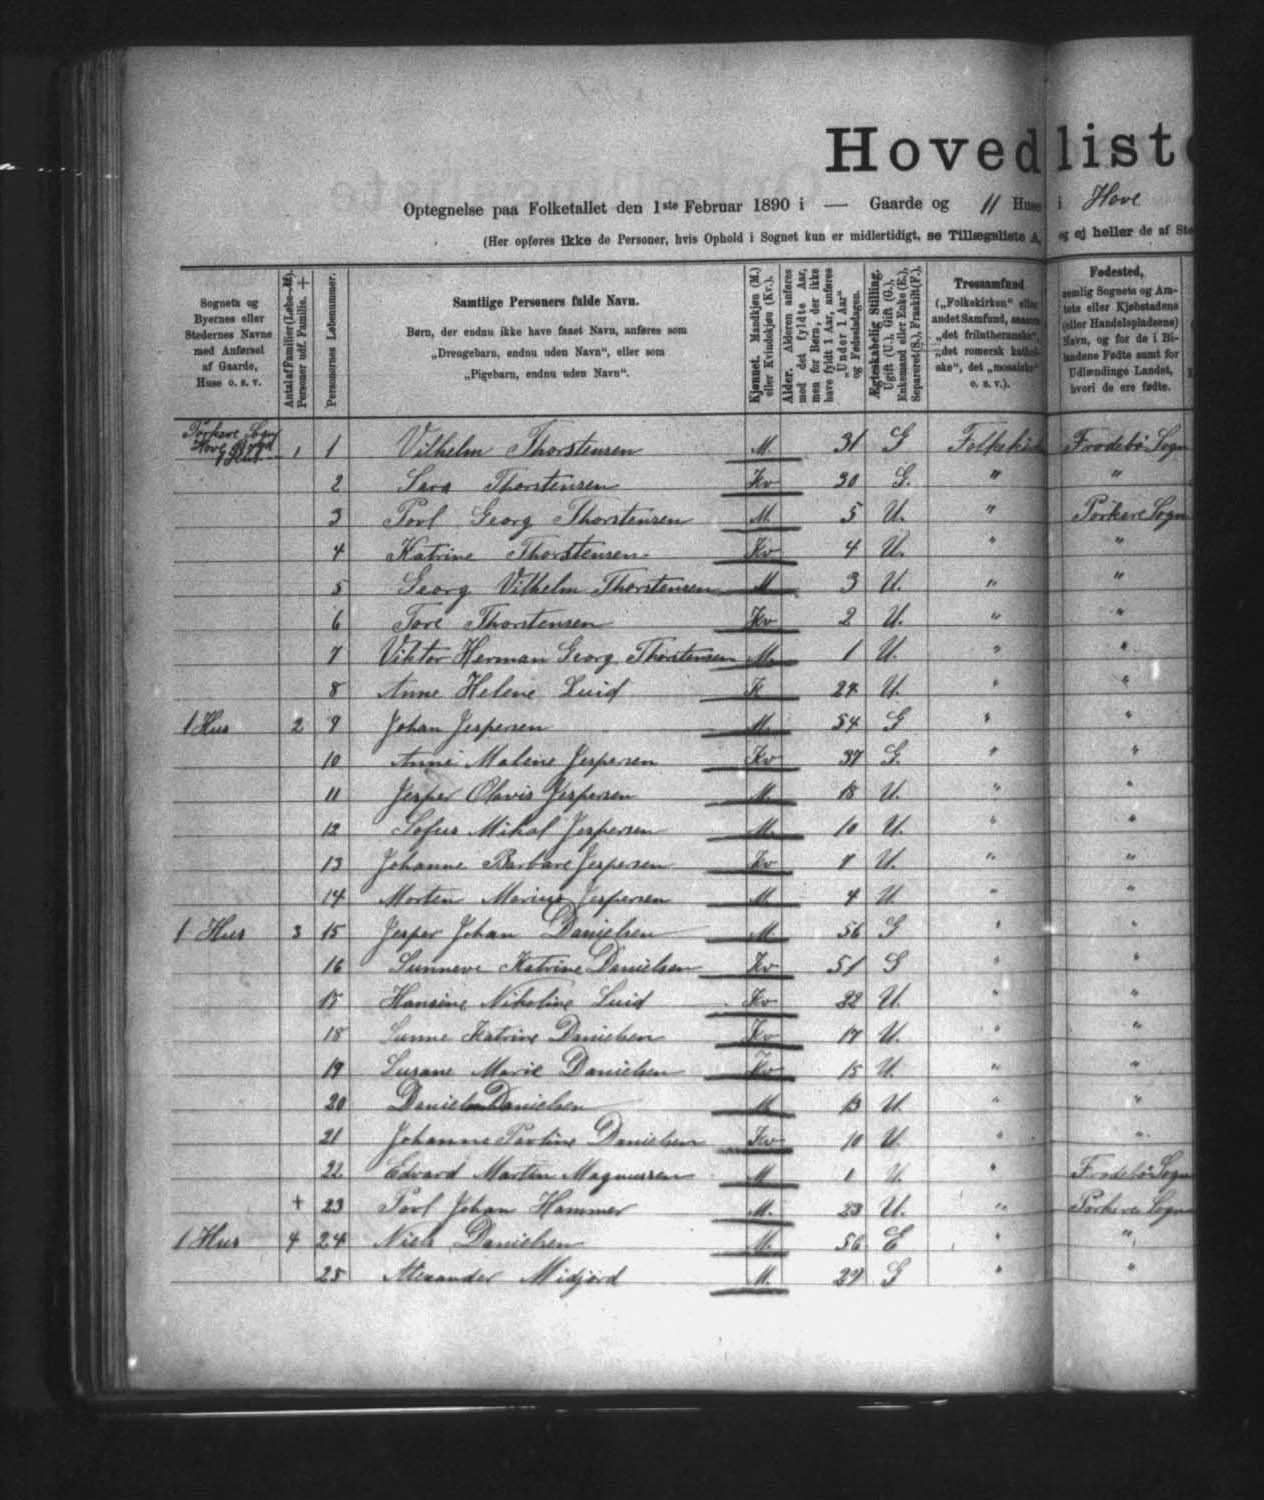 Hovedliste
Optegnelse paa Folketallet den 1ste Februar 1890 i — Gaarde og 11 Huse i Hove
(Her opføres ikke de Personer, hvis Ophold i Sognet kun er midlertidigt, se Tillægsliste A, og ej heller de af
Sognets og Byernes eller Stedernes Navne med Anførsel af Gaarde, Huse o. s. v.
Antal af Familier (Løbe-№). Personer udf. Familie. +
Personernes Løbenummer.
Samtlige Personers fulde Navn.
Børn, der endnu ikke have faaet Navn, anføres som
„Drengebarn, endnu uden Navn“, eller som
„Pigebarn, endnu uden Navn“.
Kjønnet. Mandkjøn (M.) eller Kvindekjøn (Kv.).
Alder. Alderen anføres med det fyldte Aar, men for Børn, der ikke have fyldt 1 Aar, anføres „Under 1 Aar“ og Fødselsdagen.
Ægteskabelig Stilling. Ugift (U.), Gift (G.), Enkemand eller Enke (E.), Separeret (S.), Fraskilt (F.).
Trossamfund
(„Folkekirken“ eller
andet Samfund, saasom
„det frilutheranske“,
„det romersk kathol-
ske“, det „mosaiske“
o. s. v.).
Fødested,
nemlig Sognets og Am-
tets eller Kjøbstadens
(eller Handelspladsens)
Navn, og for de i Bi-
landene Fødte samt for
Udlændinge Landet,
hvori de ere fødte.
Porkere Sogn Hove Bygd 1 Hus 1 1 Vilhelm Thorstensen M. 31 G Folkekirken Frodebø Sogn
2 Sara Thorstensen Kv 30 G. " "
3 Povl Georg Thorstensen M. 5 U. " Porkere Sogn
4 Katrine Thorstensen Kv 4 U. " "
5 Georg Vilhelm Thorstensen M 3 U. " "
6 Tore Thorstensen Kv 2 U. " "
7 Viktor Herman Georg Thorstensen M. 1 U. " "
8 Anne Helene Luid K 24 U. " "
1 Hus 2 9 Johan Jespersen M. 54 G " "
10 Anne Malene Jespersen Kv 37 G. " "
11 Jesper Olavis Jespersen M. 18 U. " "
12 Sofus Mikal Jespersen M. 10 U. " "
13 Johanne Barbare Jespersen Kv 7 U. " "
14 Morten Marius Jespersen M 4 U " "
1 Hus 3 15 Jesper Johan Danielsen M 56 G " "
16 Sunneve Katrine Danielsen Kv 51 G " "
17 Hansine Nikoline Luid Kv 22 U. " "
18 Sunne Katrine Danielsen Kv 17 U. " "
19 Susane Marie Danielsen Kv 15 U. " "
20 Danielsen M 13 U " "
21 Johanne Pavline Danielsen Kv 10 U. " "
22 Edvard Martin Magnussen M 1 U. " Frodebø Sogn
+ 23 Povl Johan Hammer M. 23 U. " Porkere Sogn
1 Hus 4 24 Niels Danielsen M. 56 E " "
25 Alexander Midjord M. 27 G " "